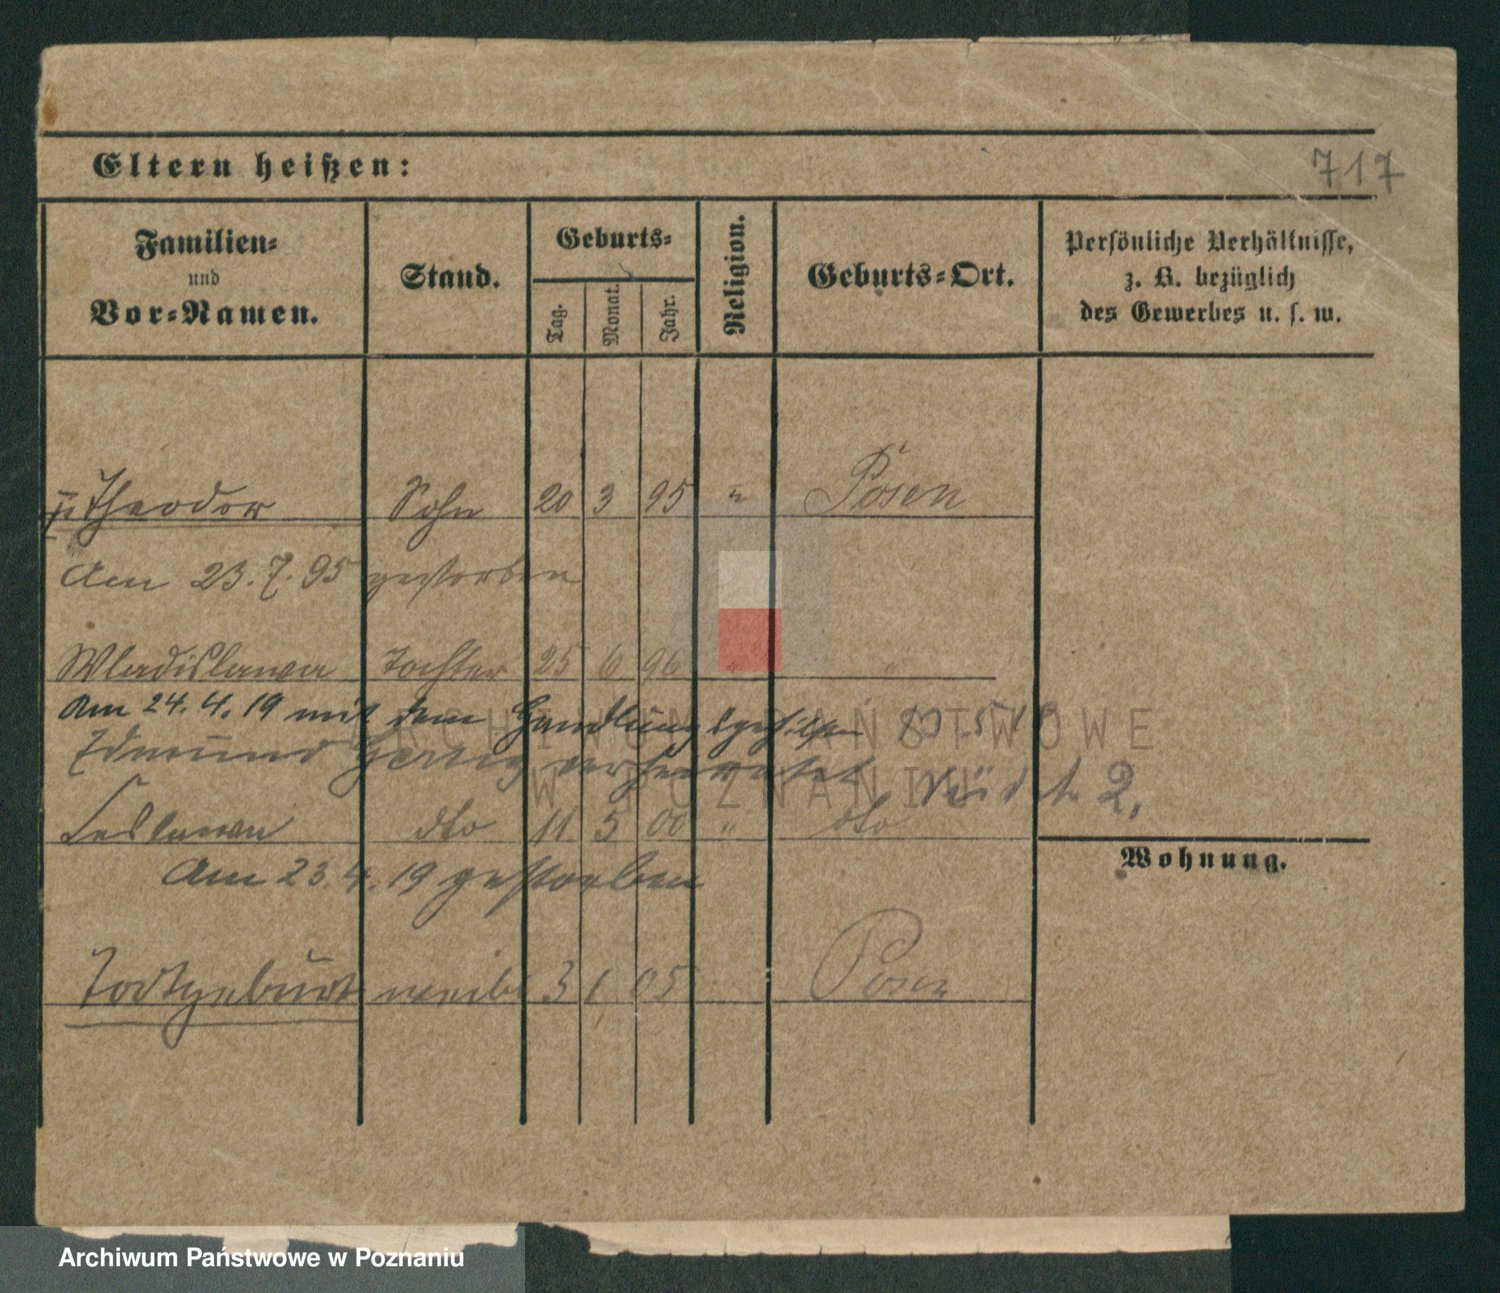 Eltern heißen:
717
Familien-
und
Vor-Namen.
Stand.
Geburts-
Tag.
Monat.
Jahr.
Religion.
Geburts-Ort.
Persönliche Verhältnisse,
z. B. bezüglich
des Gewerbes u. s. w.
Theodor Sohn 20 3 95 " Posen
Am 23.7.95 gestorben
Wladislawa Tochter 25 6 96 " "
Am 24.4.19 mit dem Handlungsgehilfen
Edmund verheiratet
Ceslawa dto 11 5 00 " dto
Am 23.4.19 gestorben
Wohnung.
Todtgeburt weibl 3 1 05 Posen
ARCHIWUM PAŃSTWOWE
W POZNANIU
Archiwum Państwowe w Poznaniu